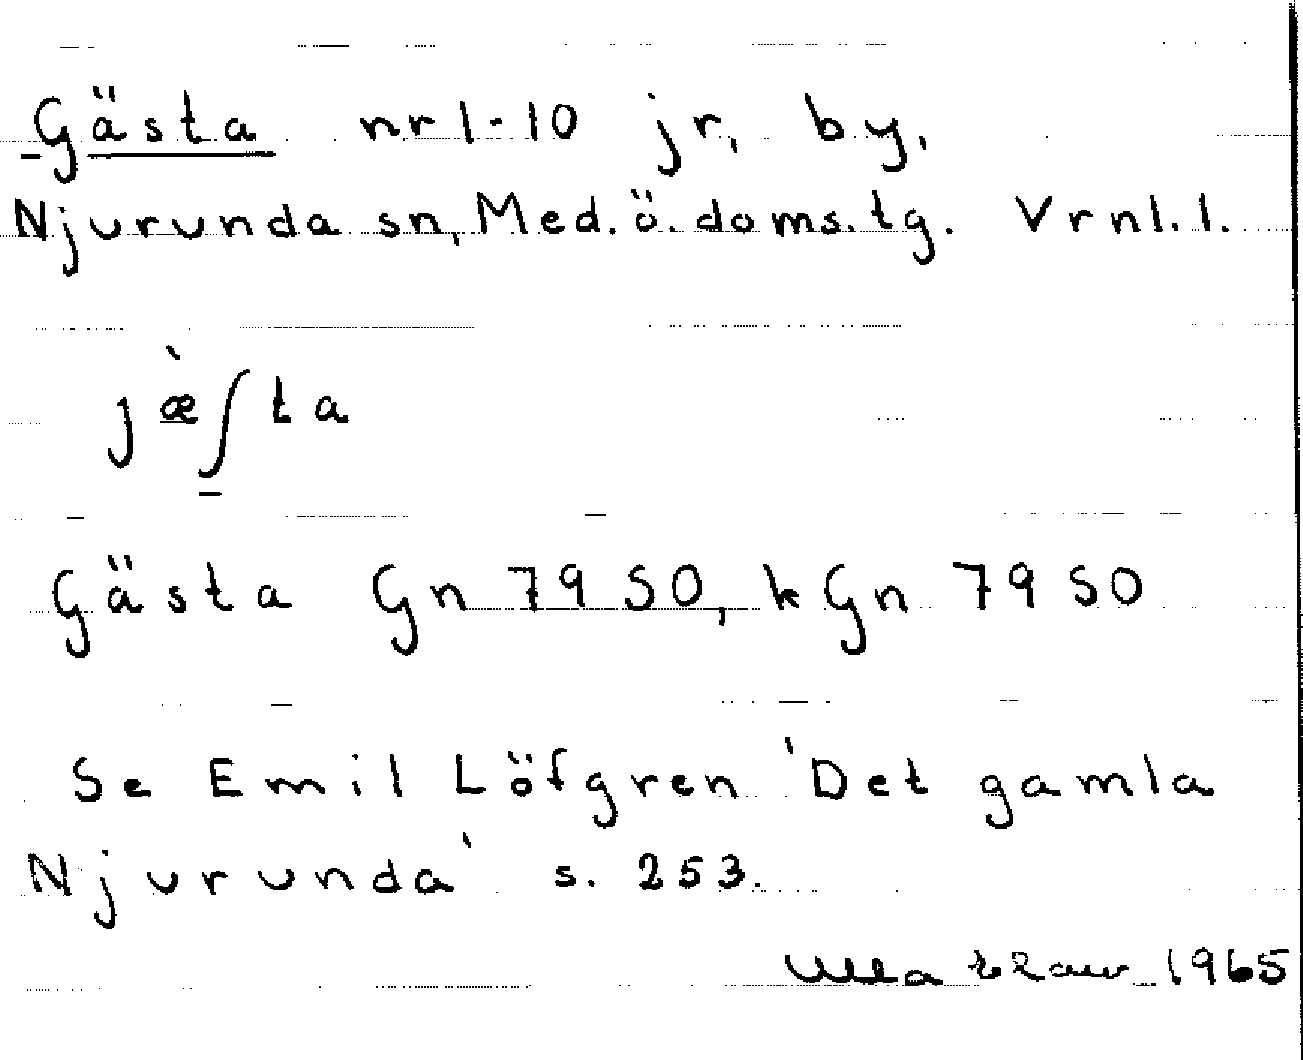 Gästa nr 1-10 jr, by,
Njurunda sn, Med. ö. doms. tg. Vrnl. l.
jæ̀ʃta
Gästa Gn 7950, k Gn 7950
Se Emil Löfgren 'Det gamla
Njurunda' s. 253.
1965